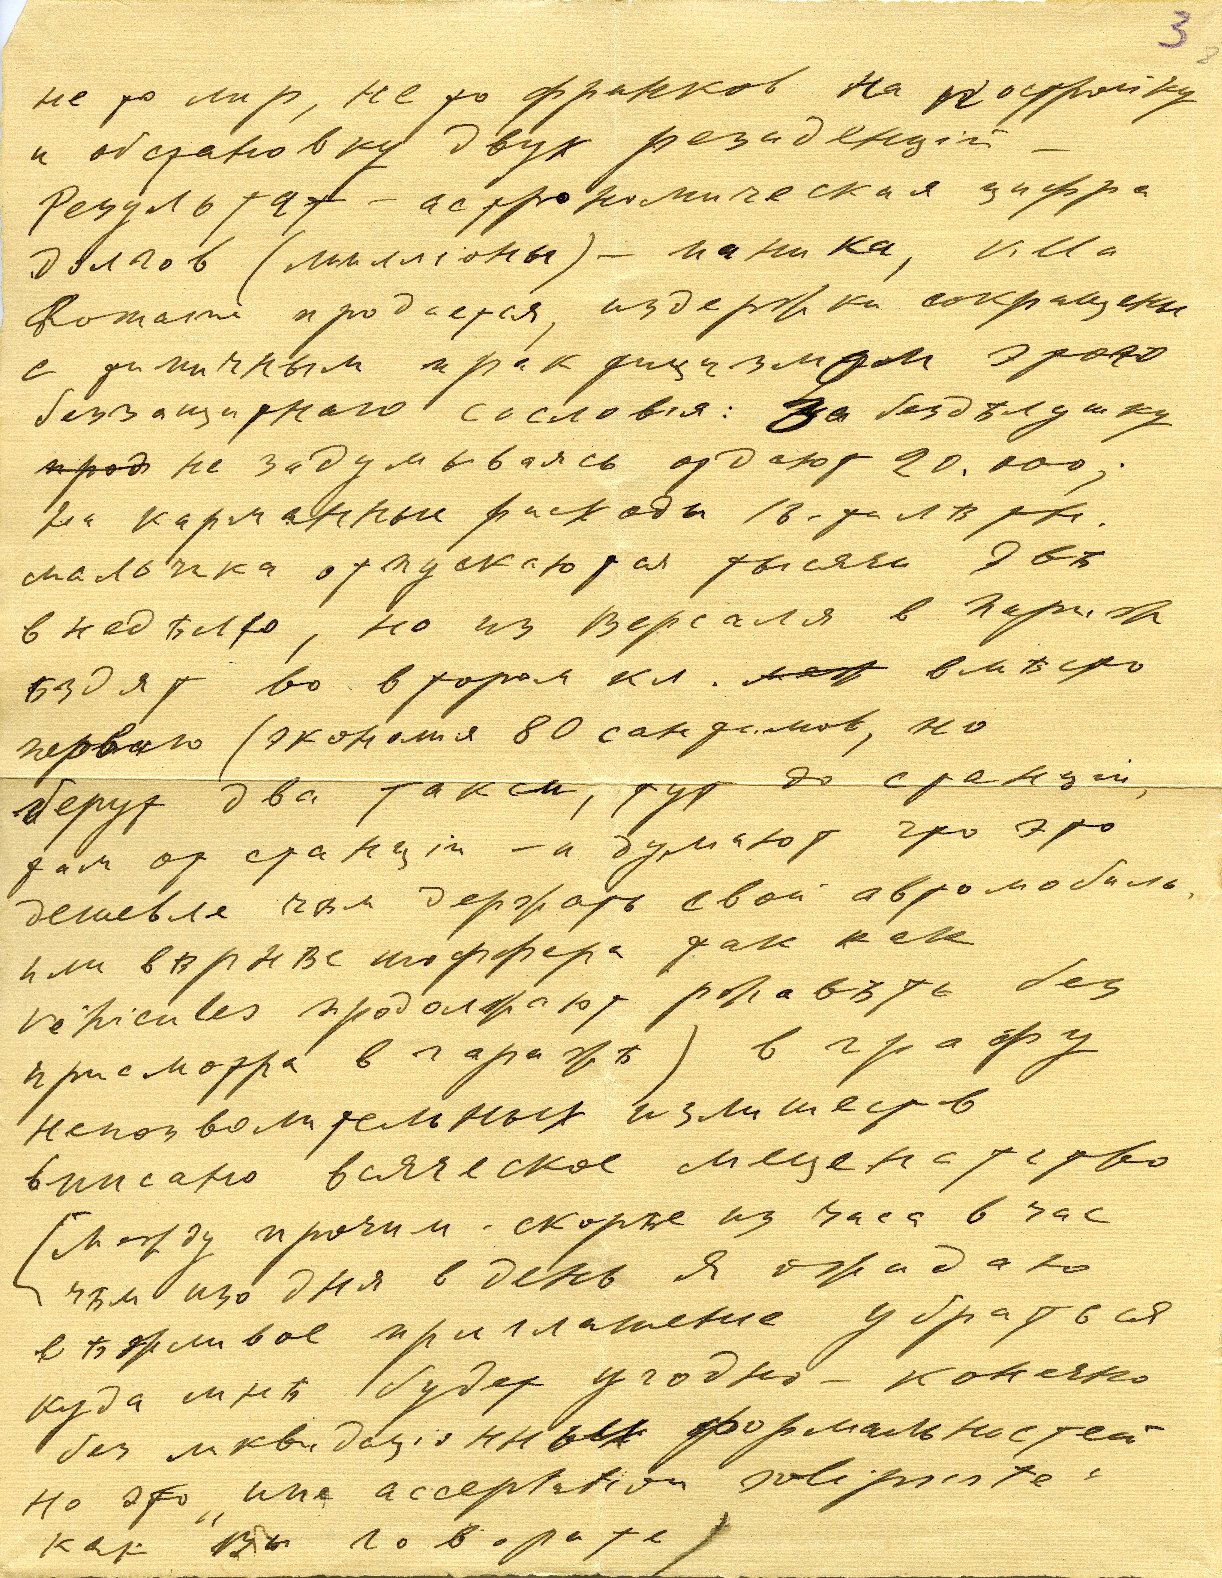 3
не то лир, не то франков на постройку
и обстановку двух резиденцій –
Результат – астрономическая цифра
долгов (милліоны) – паника, Villa
продается, издержки сокращены
с типичным практицизмом этого
беззащитного сословія: За бездѣлушку
прод не задумываясь отдают 20.000,
на карманные расходы 13-тилѣтн.
мальчика отпускаются тысячи двѣ
в недѣлю, но из Версаля в Париж
ѣздят во втором кл. вмѣсто
перваго (экономія 80 сантимов, но
берут два такси, тут до станціи,
там от станціи – и думают что это
дешевле чѣм держать свой автомобиль,
или вѣрнѣе шоффера так как
véhicules продолжают ржавѣть без
присмотра в гаражѣ) в графу
непозволительных излишеств
вписано всяческое меценатство
(Между прочим – скорѣе из часа в час
чѣм изо дня в день я ожидаю
вѣжливое приглашеніе убраться
куда мнѣ будет угодно – конечно
без ликвидаціонных формальностей
но это „une acceptation
как Вы говорите)